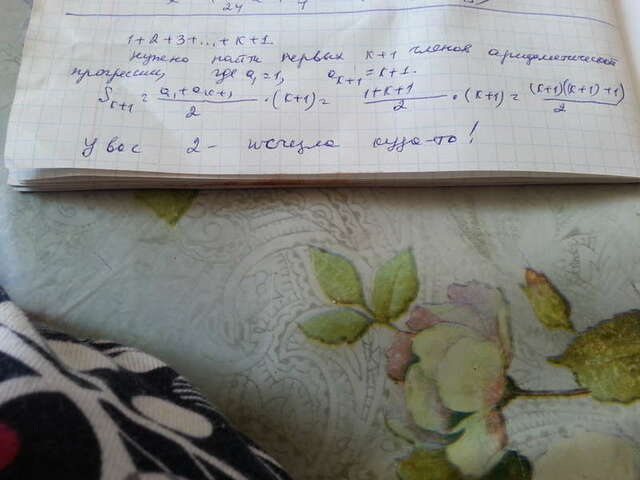 24
1+2+3+...+к+1.
Нужно найти первых к+1 членов арифметической
прогрессии, где a₁=1, aₖ₊₁=к+1.
Sₖ₊₁ = (a₁+aₖ₊₁)/2 · (к+1) = (1+к+1)/2 · (к+1) = (к+1)((к+1)+1)/2
У вас 2- исчезла куда-то!